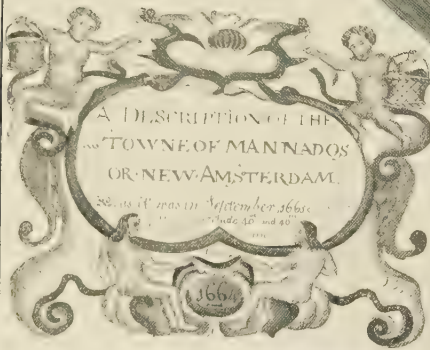 A DESCRIPTION OF THE
TOWNE OF MANNADOS
OR·NEW·AMSTERDAM
as it was in September 1661
40 and 40
1664